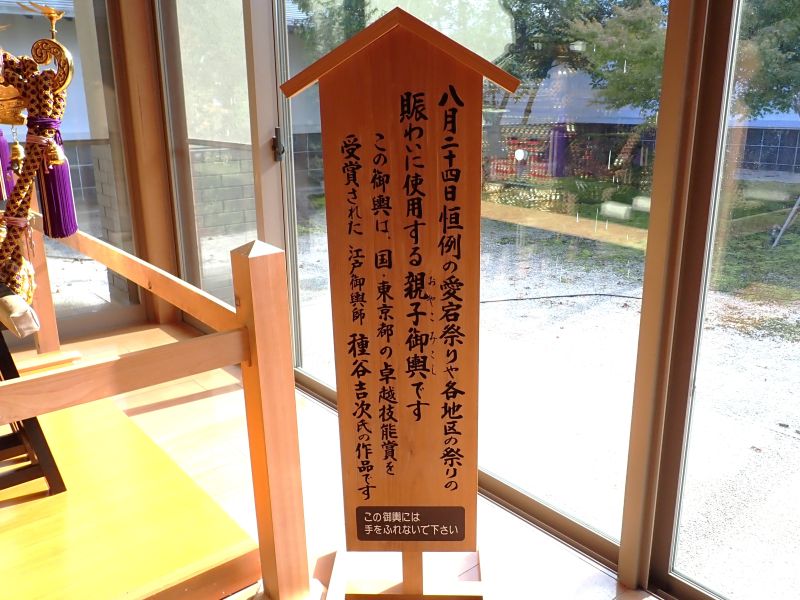 八月二十四日恒例の愛宕祭りや各地区の祭りの
賑わいに使用する親子御輿です
おやこみこし
この御輿は、国・東京都の卓越技能賞を
受賞された 江戸御輿師 種谷吉次氏の作品です
この御輿には
手をふれないで下さい